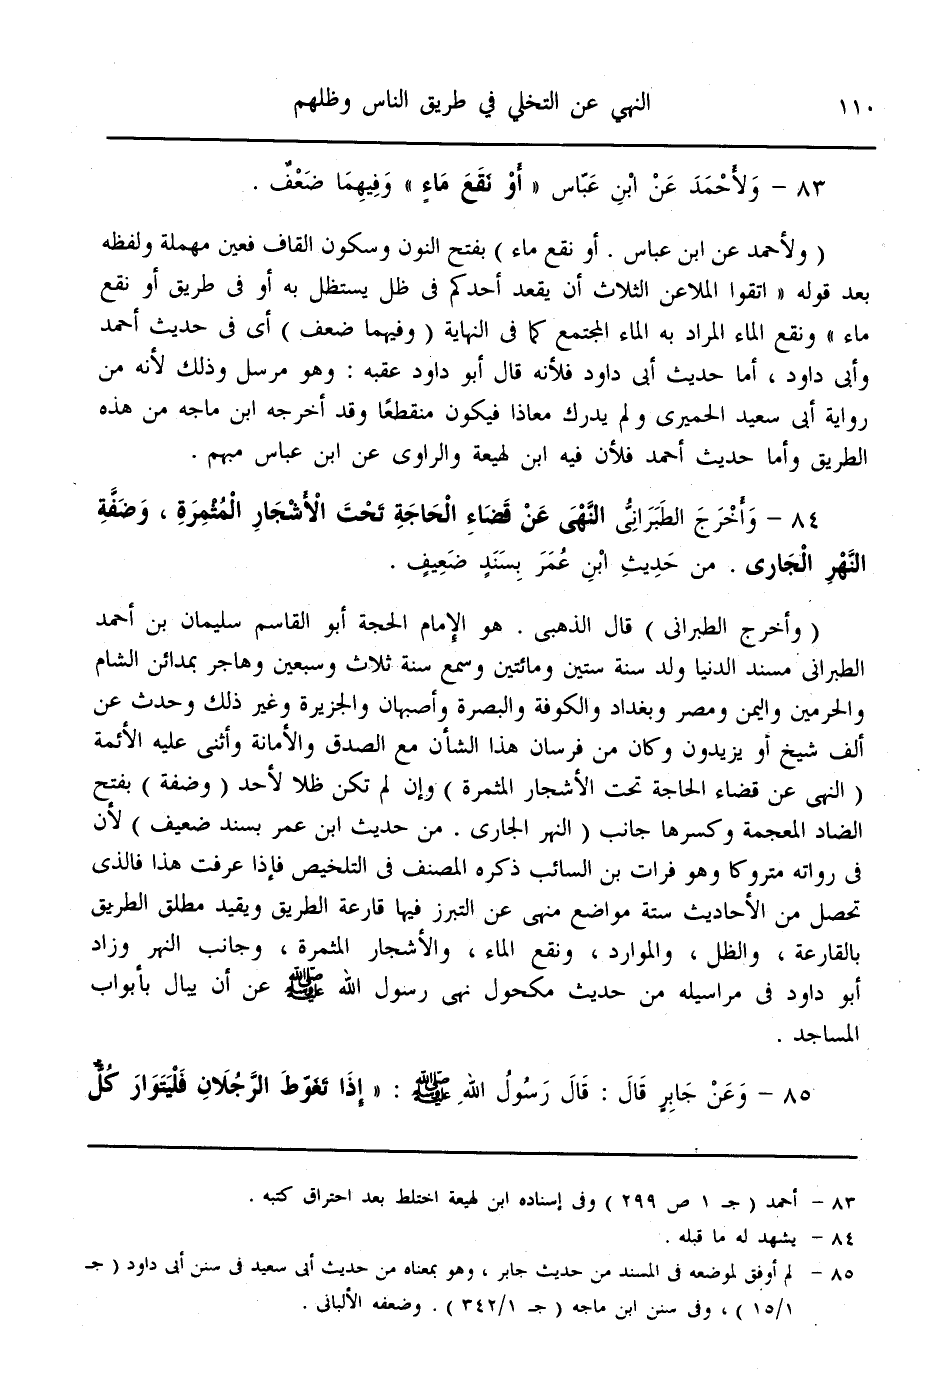 ١١٠ النهي عن التخلي في طريق الناس وظلهم
٨٣ – وَلأَحْمَدَ عَنْ ابْنِ عَبّاس « أَوْ نَقَعَ مَاءٍ » وَفِيهِمَا ضَعْفٌ .
( ولأحمد عن ابن عباس . أو نقع ماء ) بفتح النون وسكون القاف فعين مهملة ولفظه
بعد قوله « اتقوا الملاعن الثلاث أن يقعد أحدكم فى ظل يستظل به أو فى طريق أو نقع
ماء » ونقع الماء المراد به الماء المجتمع كما فى النهاية ( وفيهما ضعف ) أى فى حديث أحمد
وأبى داود ، أما حديث أبى داود فلأنه قال أبو داود عقبه : وهو مرسل وذلك لأنه من
رواية أبى سعيد الحميرى ولم يدرك معاذا فيكون منقطعًا وقد أخرجه ابن ماجه من هذه
الطريق وأما حديث أحمد فلأن فيه ابن لهيعة والراوى عن ابن عباس مبهم .
٨٤ – وَأَخْرَجَ الطَبَرَانِىُّ النَّهْىَ عَنْ قَضَاءِ الْحَاجَةِ تَحْتَ الْأَشْجَارِ الْمُثْمِرَةِ ، وَضَفَّةِ
النَّهْرِ الْجَارى . من حَدِيثِ ابْنِ عُمَرَ بِسَنَدٍ ضَعِيفٍ .
( وأخرج الطبرانى ) قال الذهبى . هو الإمام الحجة أبو القاسم سليمان بن أحمد
الطبرانى مسند الدنيا ولد سنة ستين ومائتين وسمع سنة ثلاث وسبعين وهاجر بمدائن الشام
والحرمين واليمن ومصر وبغداد والكوفة والبصرة وأصبهان والجزيرة وغير ذلك وحدث عن
ألف شيخ أو يزيدون وكان من فرسان هذا الشأن مع الصدق والأمانة وأثنى عليه الأئمة
( النهى عن قضاء الحاجة تحت الأشجار المثمرة ) وإن لم تكن ظلا لأحد ( وضفة ) بفتح
الضاد المعجمة وكسرها جانب ( النهر الجارى . من حديث ابن عمر بسند ضعيف ) لأن
فى رواته متروكا وهو فرات بن السائب ذكره المصنف فى التلخيص فإذا عرفت هذا فالذى
تحصل من الأحاديث ستة مواضع منهى عن التبرز فيها قارعة الطريق ويقيد مطلق الطريق
بالقارعة ، والظل ، والموارد ، ونقع الماء ، والأشجار المثمرة ، وجانب النهر وزاد
أبو داود فى مراسيله من حديث مكحول نهى رسول الله ﷺ عن أن يبال بأبواب
المساجد .
٨٥ – وَعَنْ جَابِرٍ قَالَ : قَالَ رَسُولُ اللهِ ﷺ : « إِذَا تَغَوّطَ الرَّجُلَانِ فَلْيَتَوَارَ كُلُّ
٨٣ – أحمد ( جـ ١ ص ٢٩٩ ) وفى إسناده ابن لهيعة اختلط بعد احتراق كتبه .
٨٤ – يشهد له ما قبله .
٨٥ – لم أوفق لموضعه فى المسند من حديث جابر ، وهو بمعناه من حديث أبى سعيد فى سنن أبى داود ( جـ
١٥/١ ) ، وفى سنن ابن ماجه ( جـ ٣٤٢/١ ) . وضعفه الألبانى .